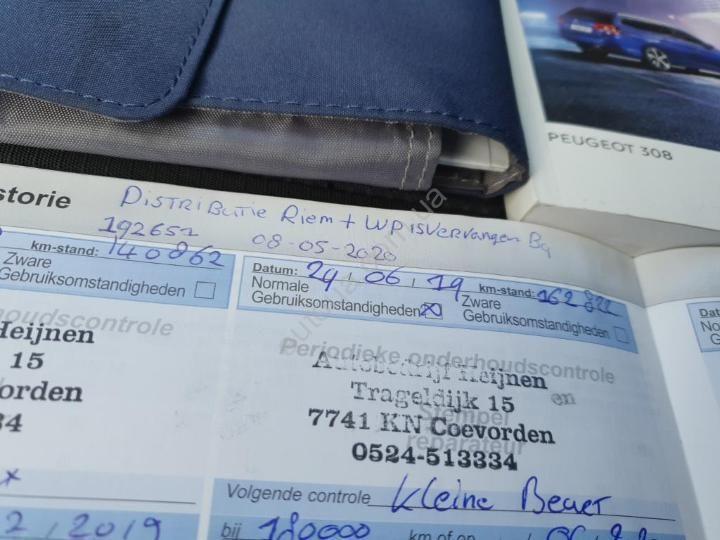 PEUGEOT 308
storie
Distributie Riem + WP is vervangen Bij
192651 08-05-2020
km-stand: 140862
Zware
Gebruiksomstandigheden
Datum: 24 06 19 km-stand: 162822
Normale
Gebruiksomstandigheden
Zware
Gebruiksomstandigheden
houdscontrole
Heijnen
15
orden
34
Periodieke onderhoudscontrole
Autobedrijf Heijnen
Trageldijk 15
en
7741 KN Coevorden
Stempel
reparateur
0524-513334
Volgende controle Kleine Beurt
2 2019
bij 180000 km of op
Dat
No
G